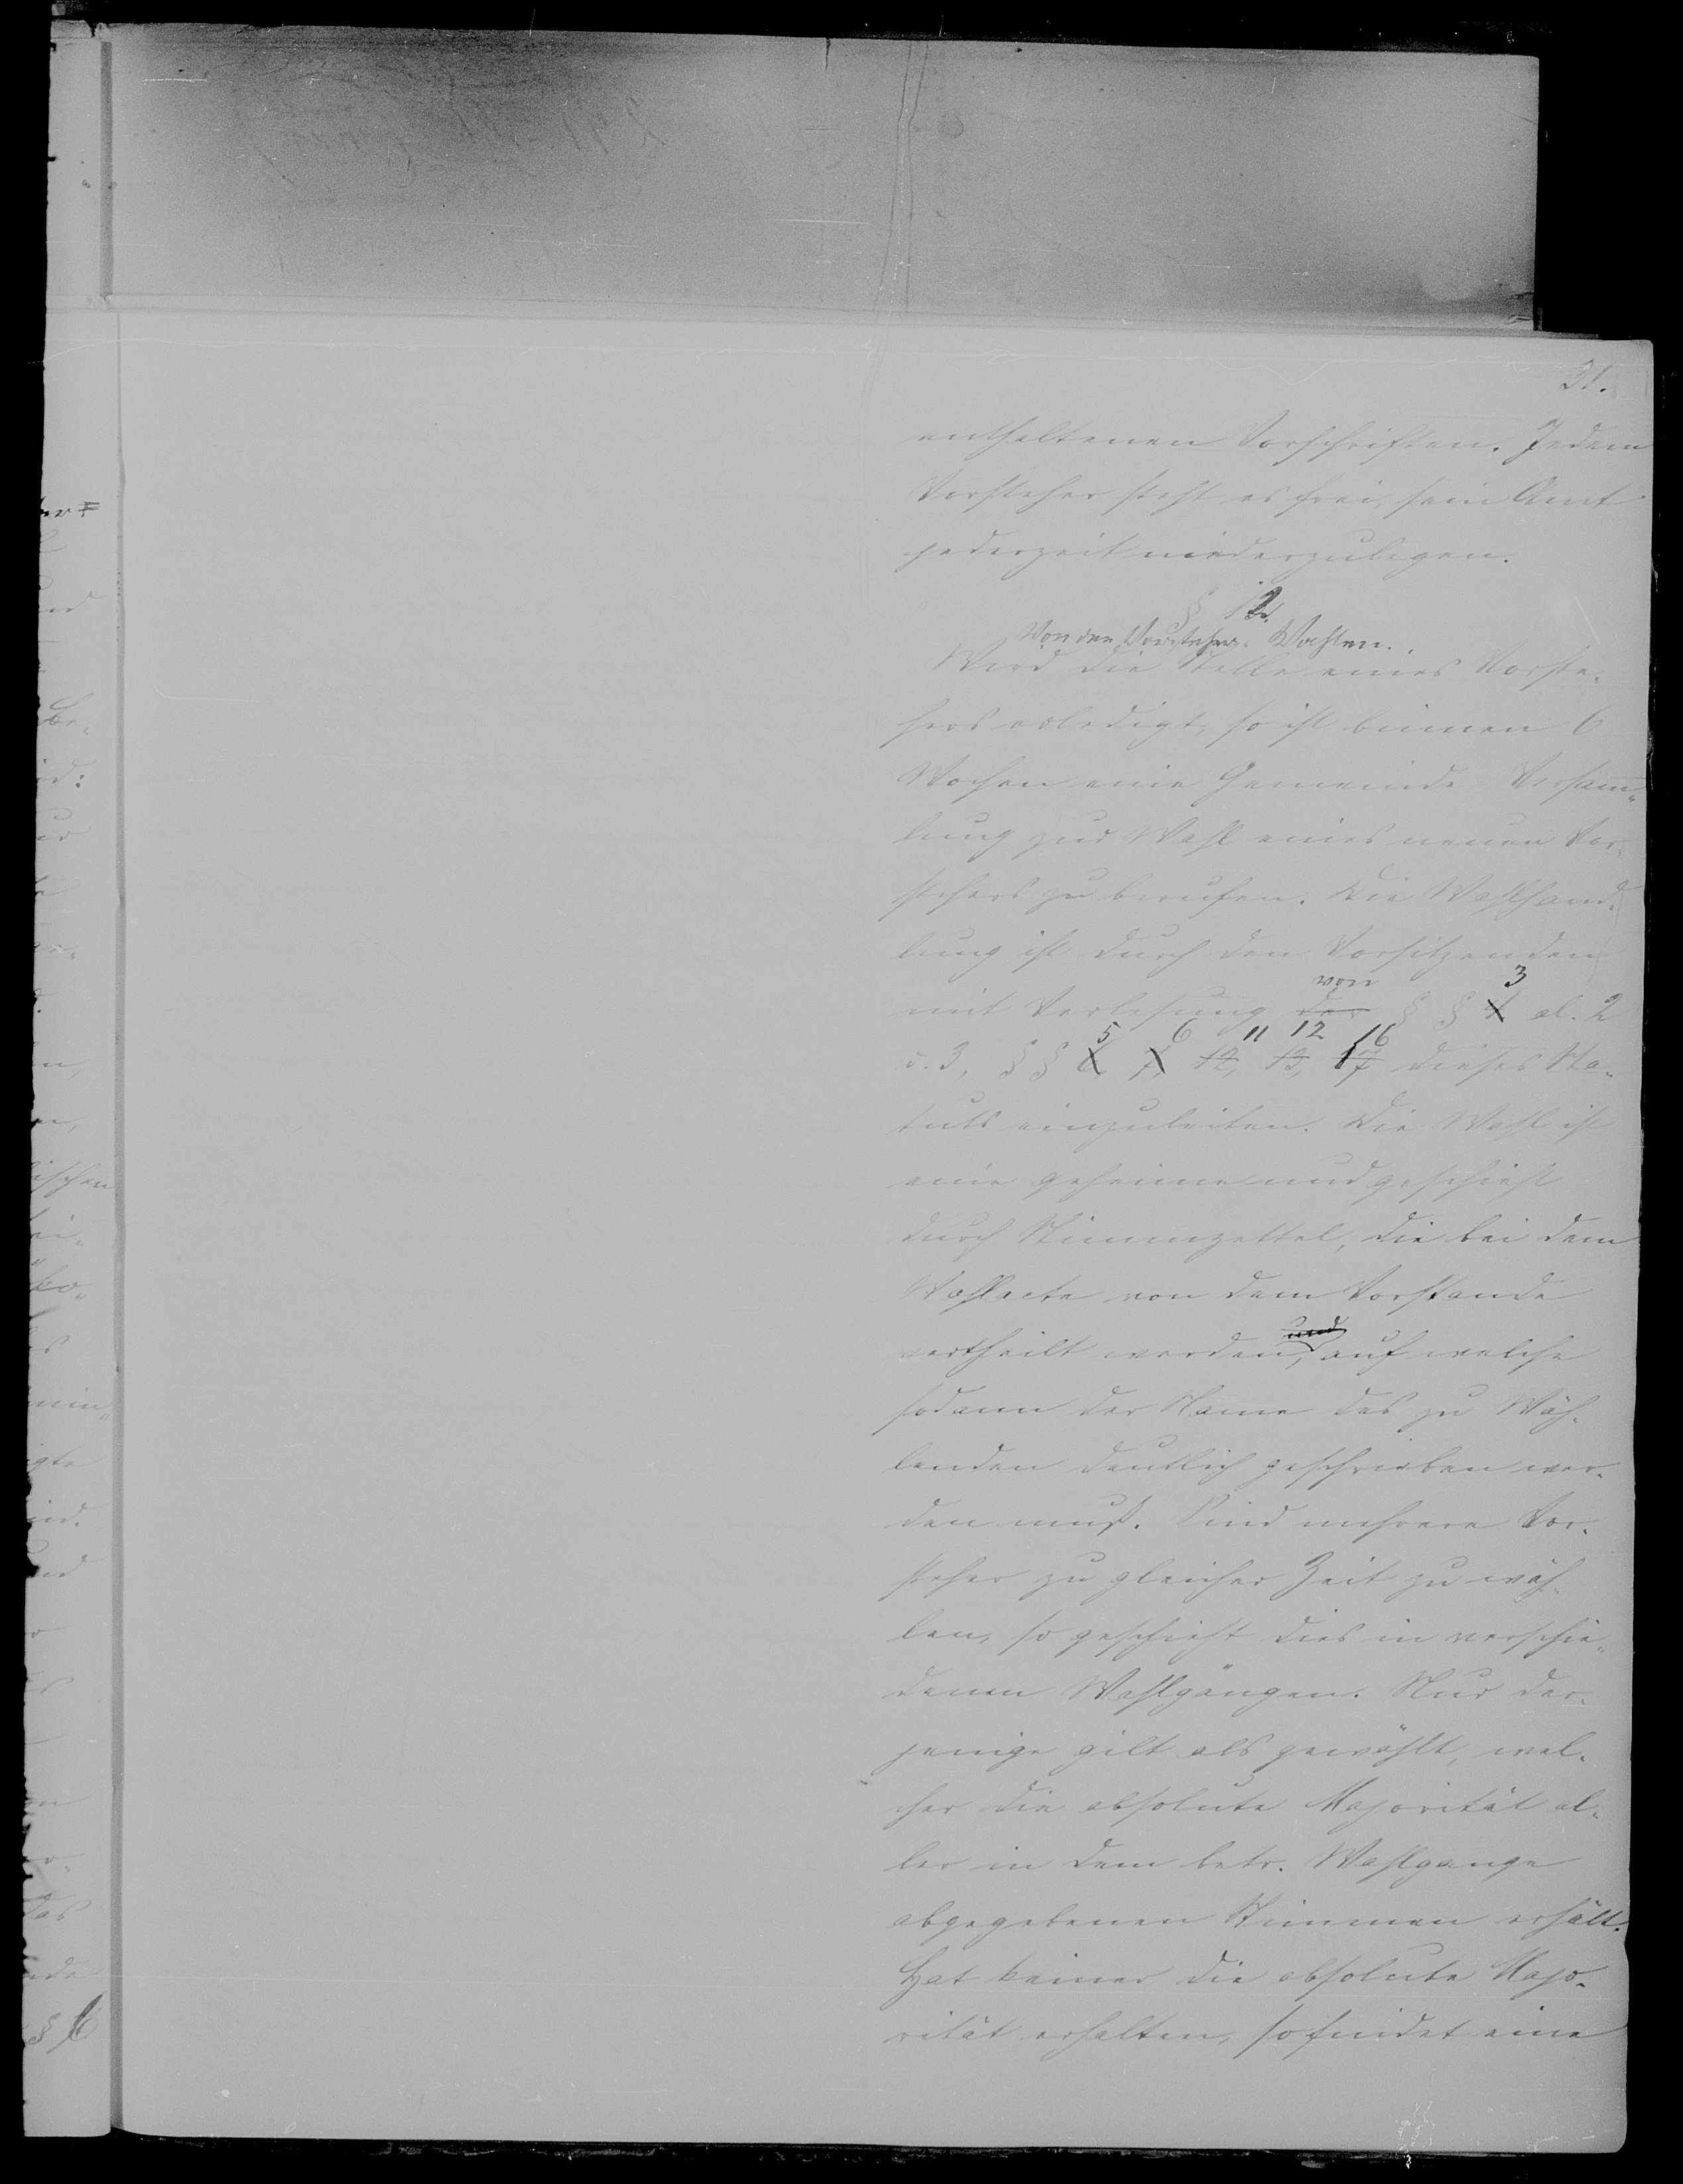 31.
enthaltenen Vorschriften. Jedem
Vorsteher steht es frei, sein Amt
jederzeit niederzulegen.
§ 12.
Von den Vorsteher-Wahlen.
Wird die Stelle eines Vorste-
hers erledigt, so ist binnen 6
Wochen eine Gemeinde Versam-
lung zur Wahl eines neuen Vor-
stehers zu berufen. Die Wahlhand-
lung ist durch den Vorsitzenden
von 3
mit Verlesung der § § 4 al. 2
5 6 11 12 16
u. 3, § § 6, 7, 12, 13, 17 dieses Sta-
tuts einzuleiten. Die Wahl ist
eine geheime und geschieht
durch Stimmzettel, die bei dem
Wahlacte von dem Vorstande
und
vertheilt werden, auf welche
sodann der Name des zu Wäh-
lenden deutlich geschrieben wer-
den muß. Sind mehrere Vor-
steher zu gleicher Zeit zu wäh-
len, so geschieht dies in verschie-
denen Wahlgängen. Nur der-
jenige gilt als gewählt, wel-
cher die absolute Majorität al-
ler in dem betr. Wahlgange
abgegebenen Stimmen erhält.
Hat keiner die absolute Majo-
rität erhalten, so findet eine